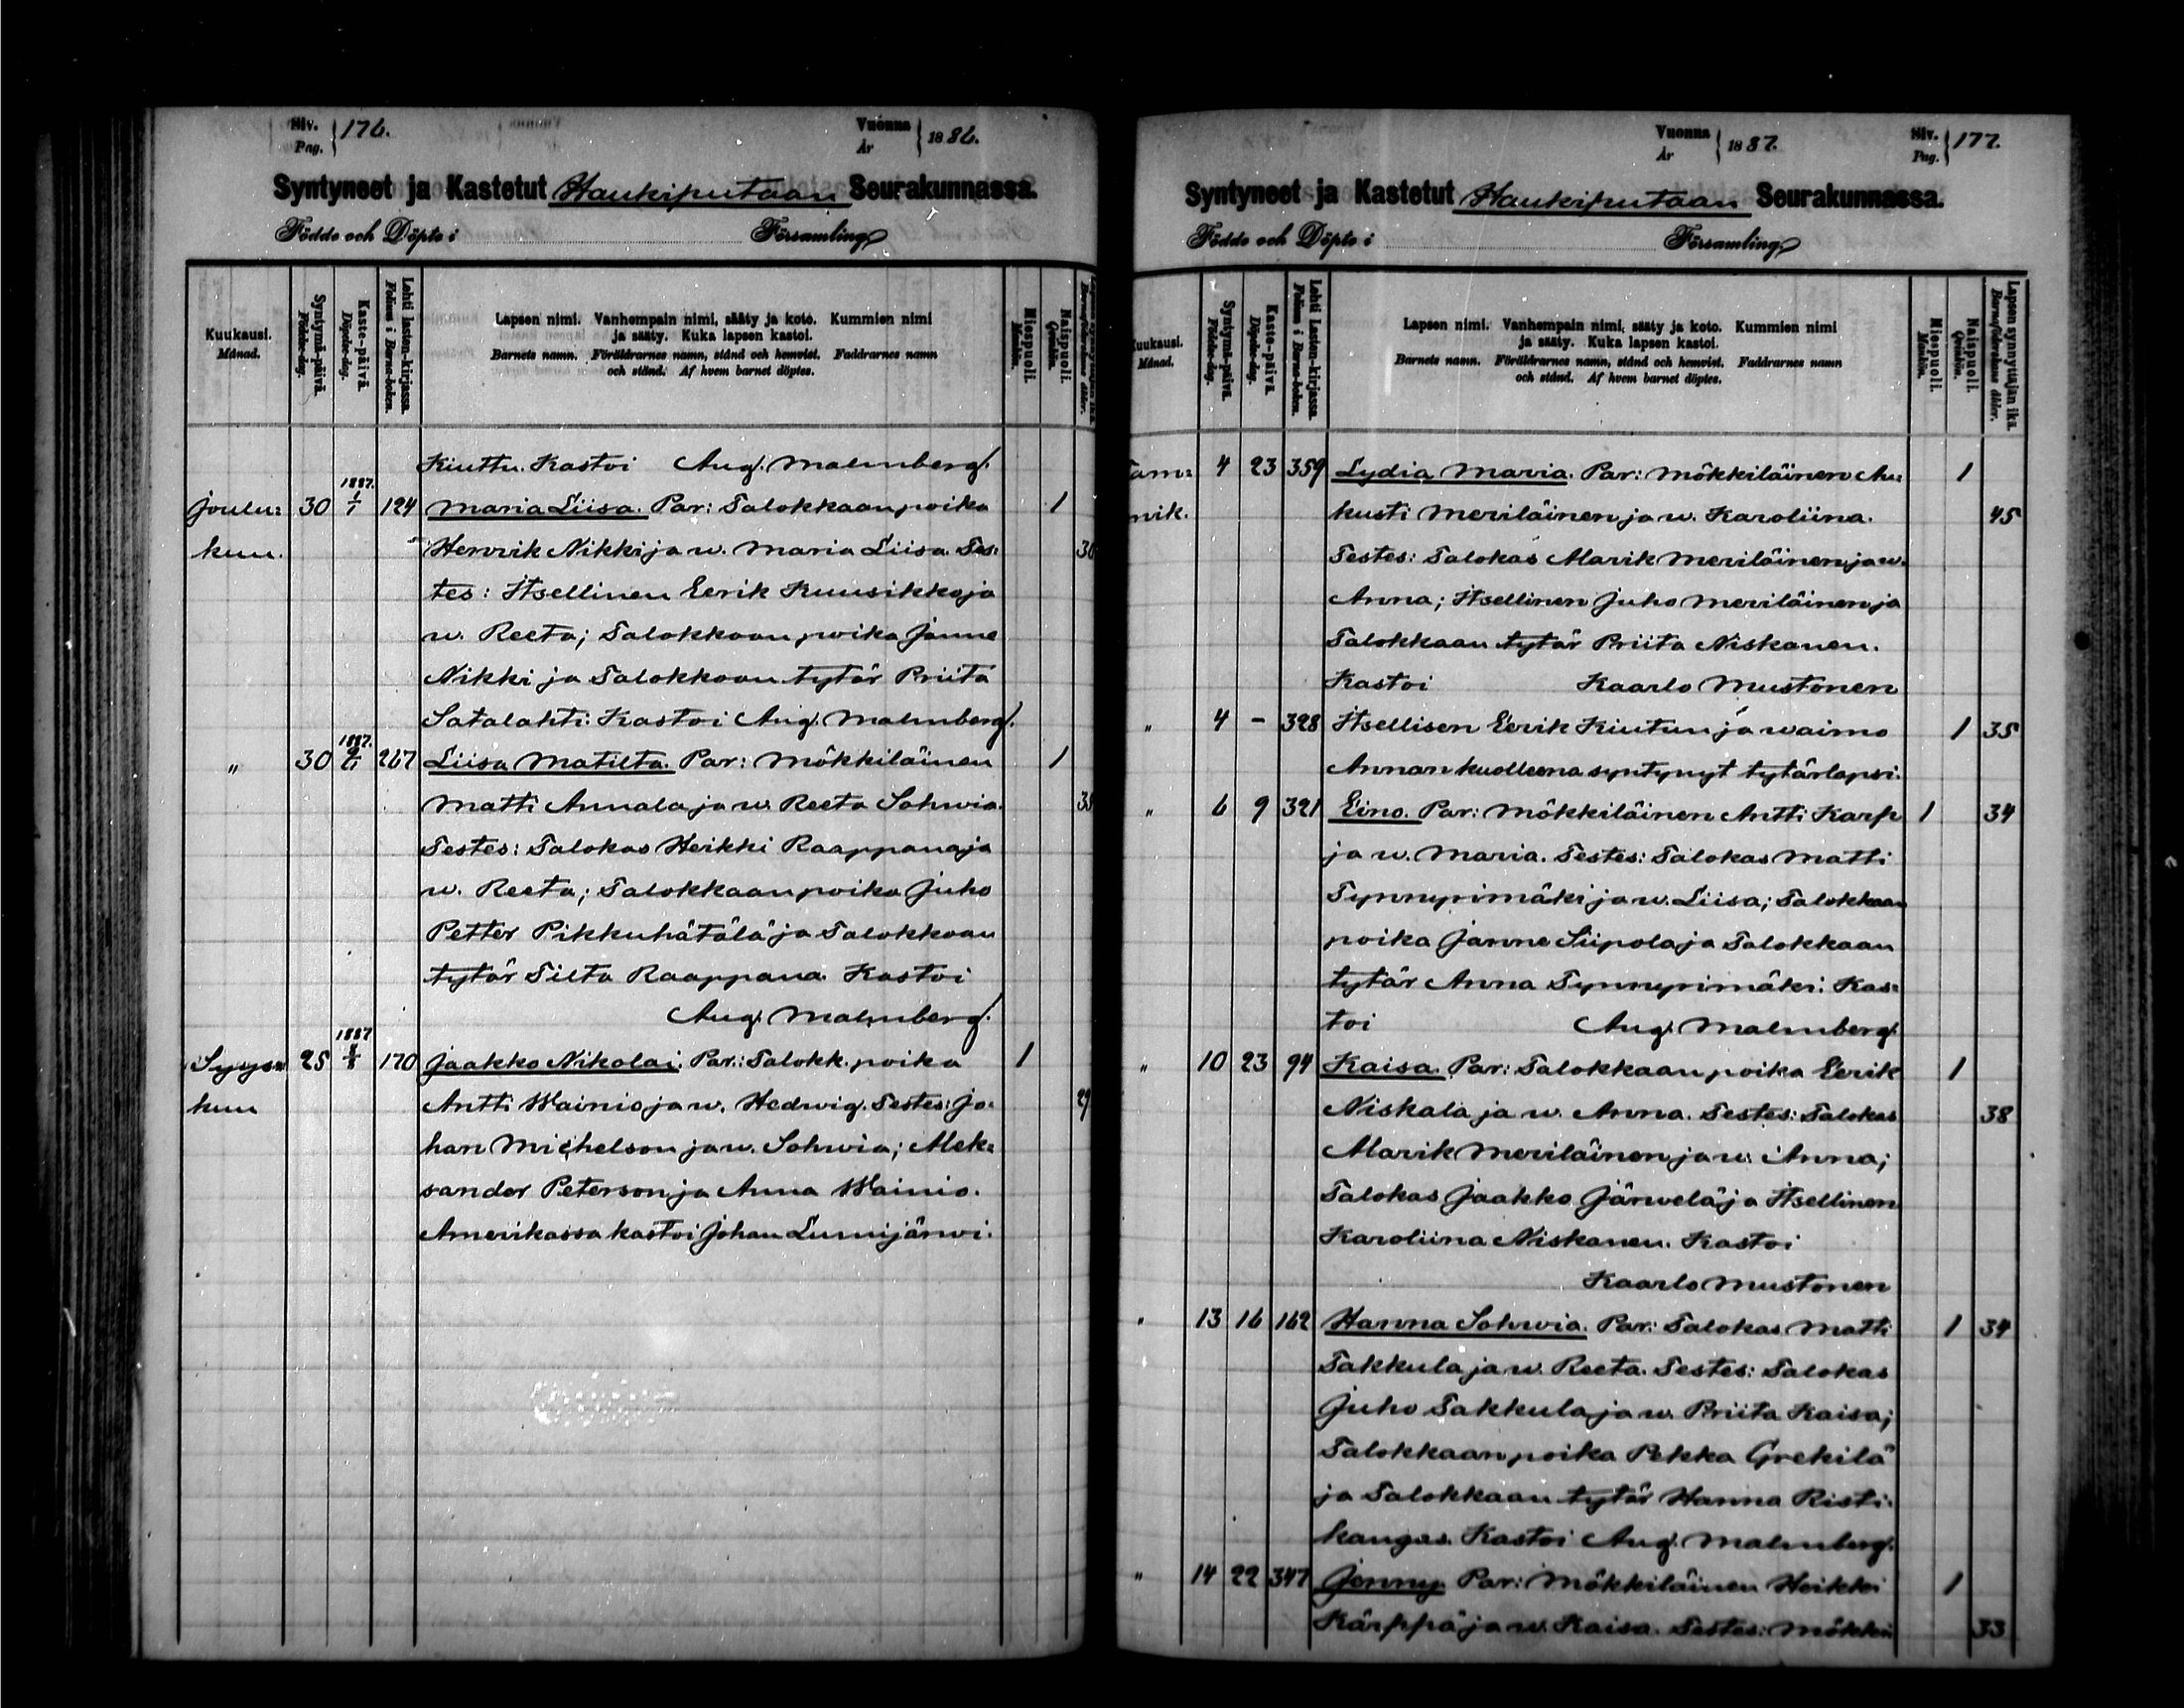 Siv. Pag. 176. Vuonna År 1886.
Syntyneet ja Kastetut Haukiputaan Seurakunnassa.
Födde och Döpte i Församling
Kuukausi. Månad.
Syntymä-päivä. Födelse-dag.
Kaste-päivä. Döpelse-dag.
Lehti lasten-kirjassa. Folium i Barna-boken.
Lapsen nimi. Vanhempain nimi, sääty ja koto. Kummien nimi
ja sääty. Kuka lapsen kastoi.
Barnets namn. Föräldrarnes namn, stånd och hemvist. Faddrarnes namn
och stånd. Af hvem barnet döptes.
Miespuoli. Mankön.
Naispuoli. Qvinkön.
Kiuttu. Kastoi Aug. Malmberg.
Joulu= 30 1887. 1/1 124 Maria Liisa. Par: Talokkaan poika 1
kuu. Henrik Nikki ja w. Maria Liisa. Tes: 30
tes: Itsellinen Eerik Kuusikko ja
w. Reeta; Talokkaan poika Janne
Nikki ja Talokkaan tytär Priita
Satalahti. Kastoi Aug. Malmberg.
" 30 1887. 267 Liisa Matilta. Par: Mökkiläinen 1
Matti Annala ja w. Reeta Sohwia.
Testes: Talokas Heikki Raappana ja
w. Reeta; Talokkaan poika Juho
Petter Pikkuhätälä ja Talokkaan
tytär Tilta Raappana. Kastoi
Aug. Malmberg.
Syys= 25 1887 170 Jaakko Nikolai. Par: Talokk. poika 1
kuu Antti Wainio ja w. Hedwig. Testes: Jo= 29
han Michelson ja w. Sohwia; Alek=
sander Peterson ja Anna Wainio.
Amerikassa kastoi Johan Lumijärwi.
Vuonna År 1887. Siv. Pag. 177.
Syntyneet ja Kastetut Haukiputaan Seurakunnassa.
Födde och Döpte i Församling
Kuukausi. Månad.
Syntymä-päivä. Födelse-dag.
Kaste-päivä. Döpelse-dag.
Lehti lasten-kirjassa. Folium i Barna-boken.
Lapsen nimi. Vanhempain nimi, sääty ja koto. Kummien nimi
ja sääty. Kuka lapsen kastoi.
Barnets namn. Föräldrarnes namn, stånd och hemvist. Faddrarnes namn
och stånd. Af hvem barnet döptes.
Miespuoli. Mankön.
Naispuoli. Qvinkön.
Lapsen synnyttäjän ikä. Barnaföderskans ålder.
Tam= 4 23 359 Lydia Maria. Par: Mökkiläinen Au= 1
mik. kusti Meriläinen ja w. Karoliina. 45
Testes: Talokas Alarik Meriläinen ja w.
Anna; Itsellinen Juho Meriläinen ja
Talokkaan tytär Priita Niskanen.
Kastoi Kaarlo Mustonen
" 4 - 328 Itsellisen Eerik Kiutun ja waimo 1 35
Annan kuolleena syntynyt tytärlapsi.
" 6 9 321 Eino. Par: Mökkiläinen Antti Karp 1 34
ja w. Maria. Testes: Talokas Matti
Tynnyrimäki ja w. Liisa; Talokkaan
poika Janne Siipola ja Talokkaan
tytär Anna Tynnyrimäki. Kas=
toi Aug. Malmberg.
" 10 23 94 Kaisa. Par: Talokkaan poika Eerik 1
Niskala ja w. Anna. Testes: Talokas 38
Alarik Meriläinen ja w. Anna;
Talokas Jaakko Järwelä ja Itsellinen
Karoliina Niskanen. Kastoi
Kaarlo Mustonen
" 13 16 162 Hanna Sohwia. Par: Talokas Matti 1 34
Takkula ja w. Reeta. Testes: Talokas
Juho Takkula ja w. Priita Kaisa;
Talokkaan poika Pekka Grekilä
ja Talokkaan tytär Hanna Risti=
kangas. Kastoi Aug. Malmberg.
" 14 22 347 Jenny. Par: Mökkiläinen Heikki 1
Kärppä ja w. Kaisa. Testes: Mökki 33